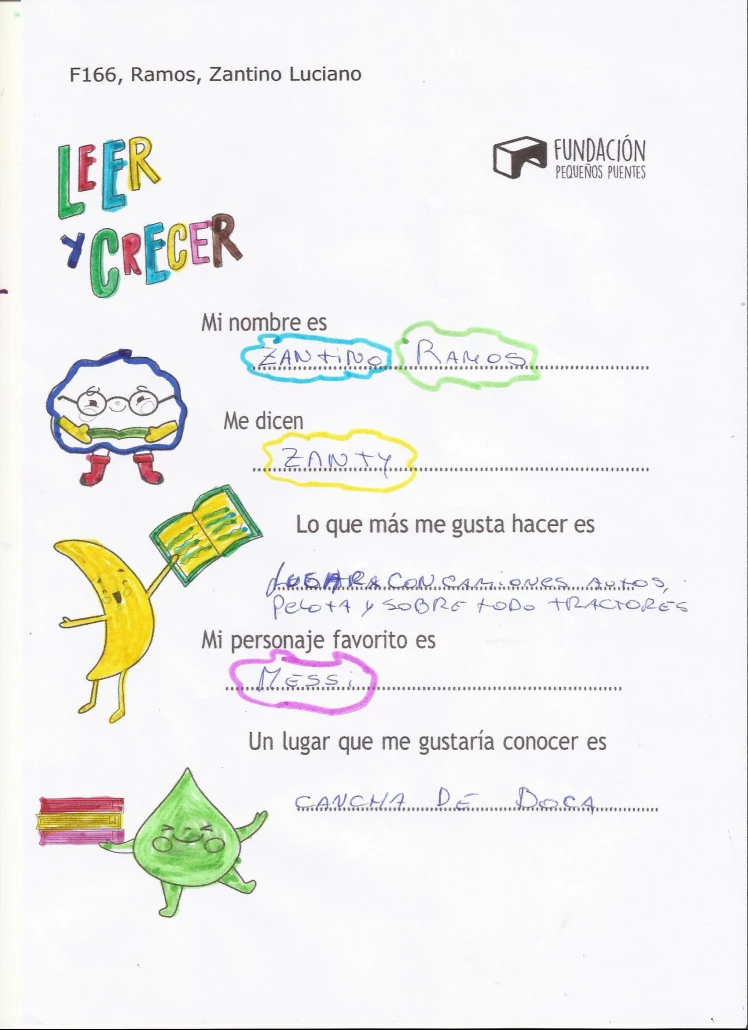 F166, Ramos, Zantino Luciano
LEER
Y CRECER
FUNDACIÓN
PEQUEÑOS PUENTES
Mi nombre es
ZANtiNO RAMOS
Me dicen
ZANTY
Lo que más me gusta hacer es
JUGAR A CON CAMIONES AUTOS,
PELOTA Y SOBRE TODO TRACTORES
Mi personaje favorito es
MESSi
Un lugar que me gustaría conocer es
CANCHA DE BOCA